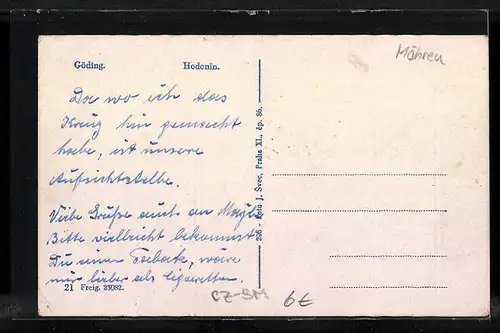 Göding. Hodonin.
Mähren
Da wo ich das
Kreuz hin gemacht
habe, ist unsere
Aufsichtstelle.
Viele Grüße auch an
Bitte vielleicht bekommst
Du einen Tabak, wäre
mir lieber als Cigaretten.
21 Freig. 23082.
226 - Foto J. Švec, Praha XI., čp. 86.
CZ-SM 6€